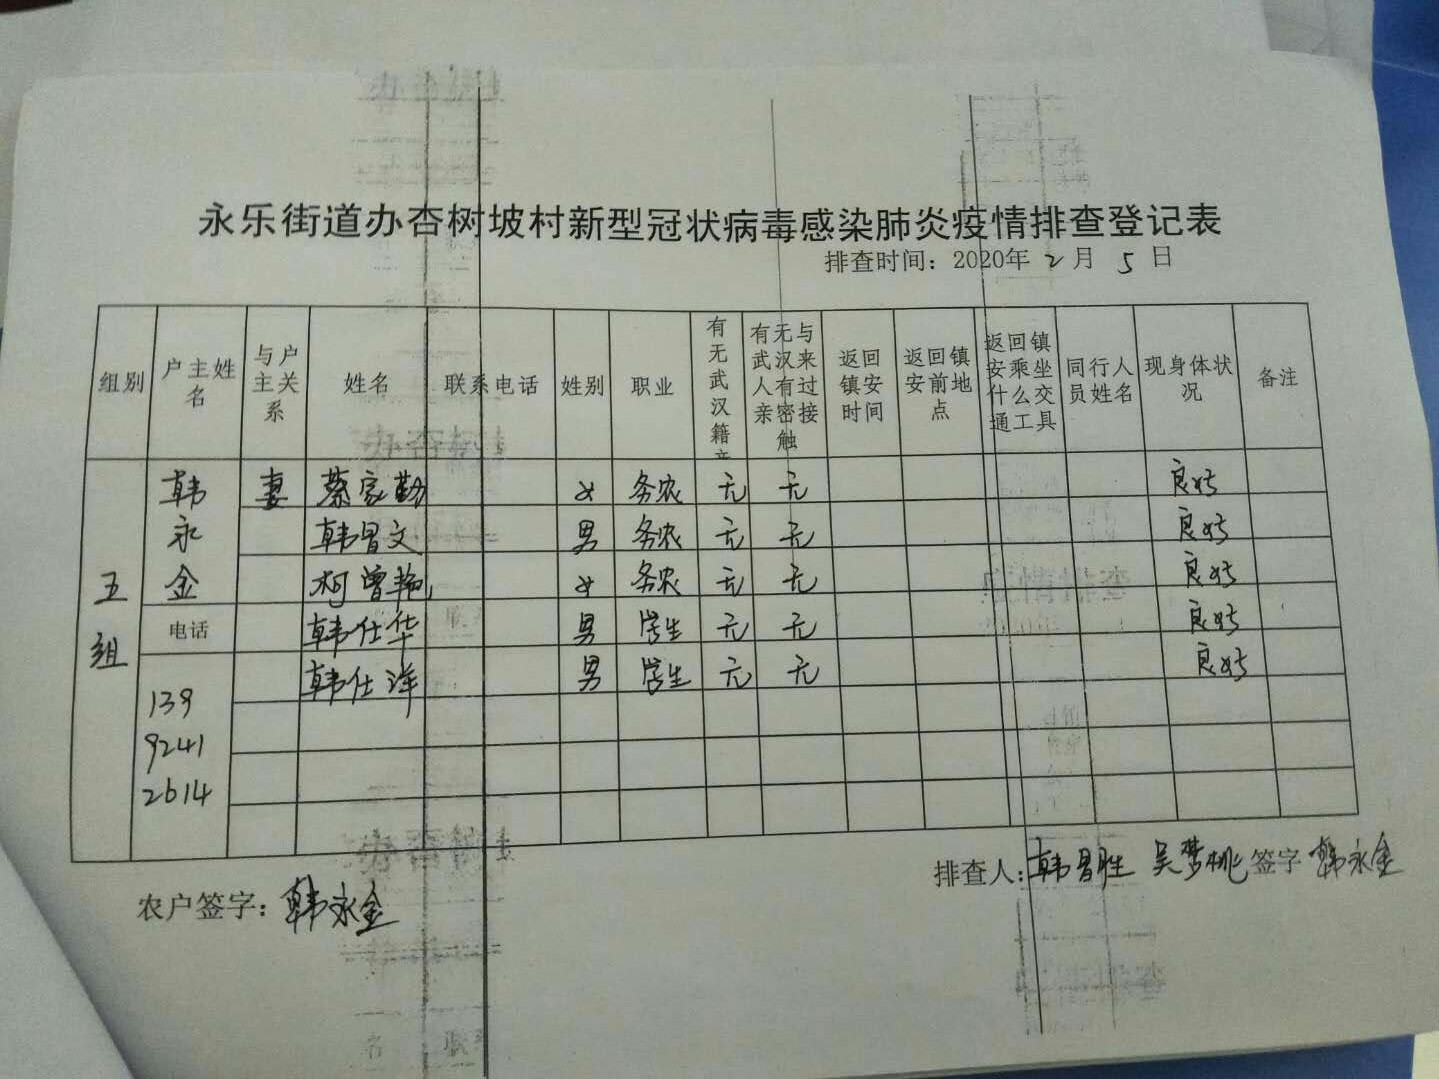 永乐街道办杏树坡村新型冠状病毒感染肺炎疫情排查登记表
排查时间：2020年 2 月 5 日
组别 户主姓名 与户主关系 姓名 联系电话 性别 职业 有无武汉籍 有无与武汉来人有过亲密接触 返回镇安时间 返回镇安前地点 返回镇安乘坐什么交通工具 同行人员姓名 现身体状况 备注
五组 韩永金 妻 蔡家勤 女 务农 无 无 良好
韩昌文 男 务农 无 无 良好
柯曾艳 女 务农 无 无 良好
电话 韩仕华 男 学生 无 无 良好
韩仕洋 男 学生 无 无 良好
139
9241
2614
排查人：韩昌胜 吴梦桃 签字 韩永金
农户签字：韩永金